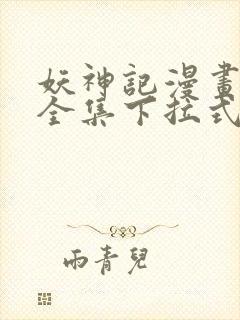 妖神記漫畫
全集下拉式
雨青兒